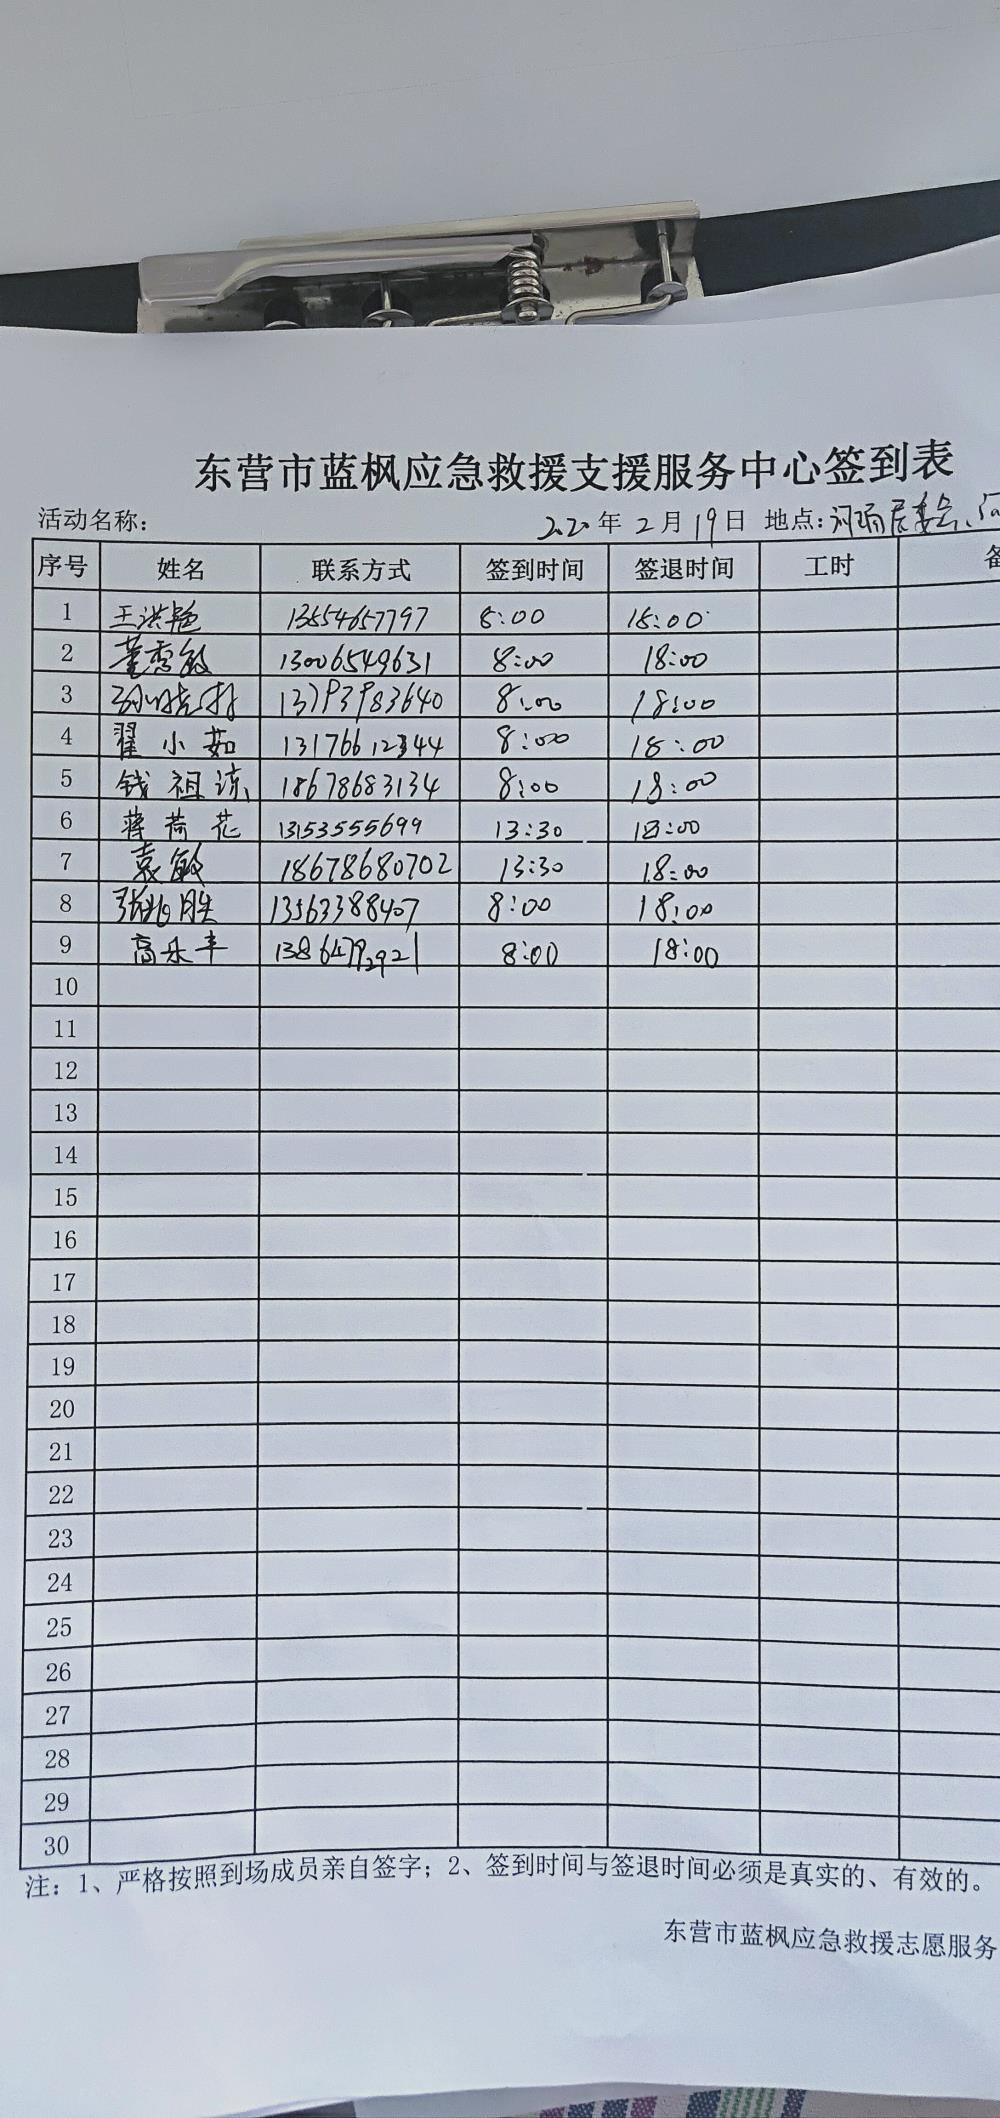 东营市蓝枫应急救援支援服务中心签到表
活动名称: 2020年2月19日 地点:
序号 姓名 联系方式 签到时间 签退时间 工时
1 王洪艳 13554657797 8:00 18:00
2 董秀敏 13006549631 8:00 18:00
3 13793983640 8:00 18:00
4 翟小茹 13176612344 8:00 18:00
5 钱祖 18678683134 8:00 18:00
6 蒋荷花 13153555699 13:30 18:00
7 袁敏 18678680702 13:30 18:00
8 张兆胜 13563388407 8:00 18:00
9 高乐丰 8:00 18:00
10
11
12
13
14
15
16
17
18
19
20
21
22
23
24
25
26
27
28
29
30
注:1、严格按照到场成员亲自签字;2、签到时间与签退时间必须是真实的、有效的。
东营市蓝枫应急救援志愿服务